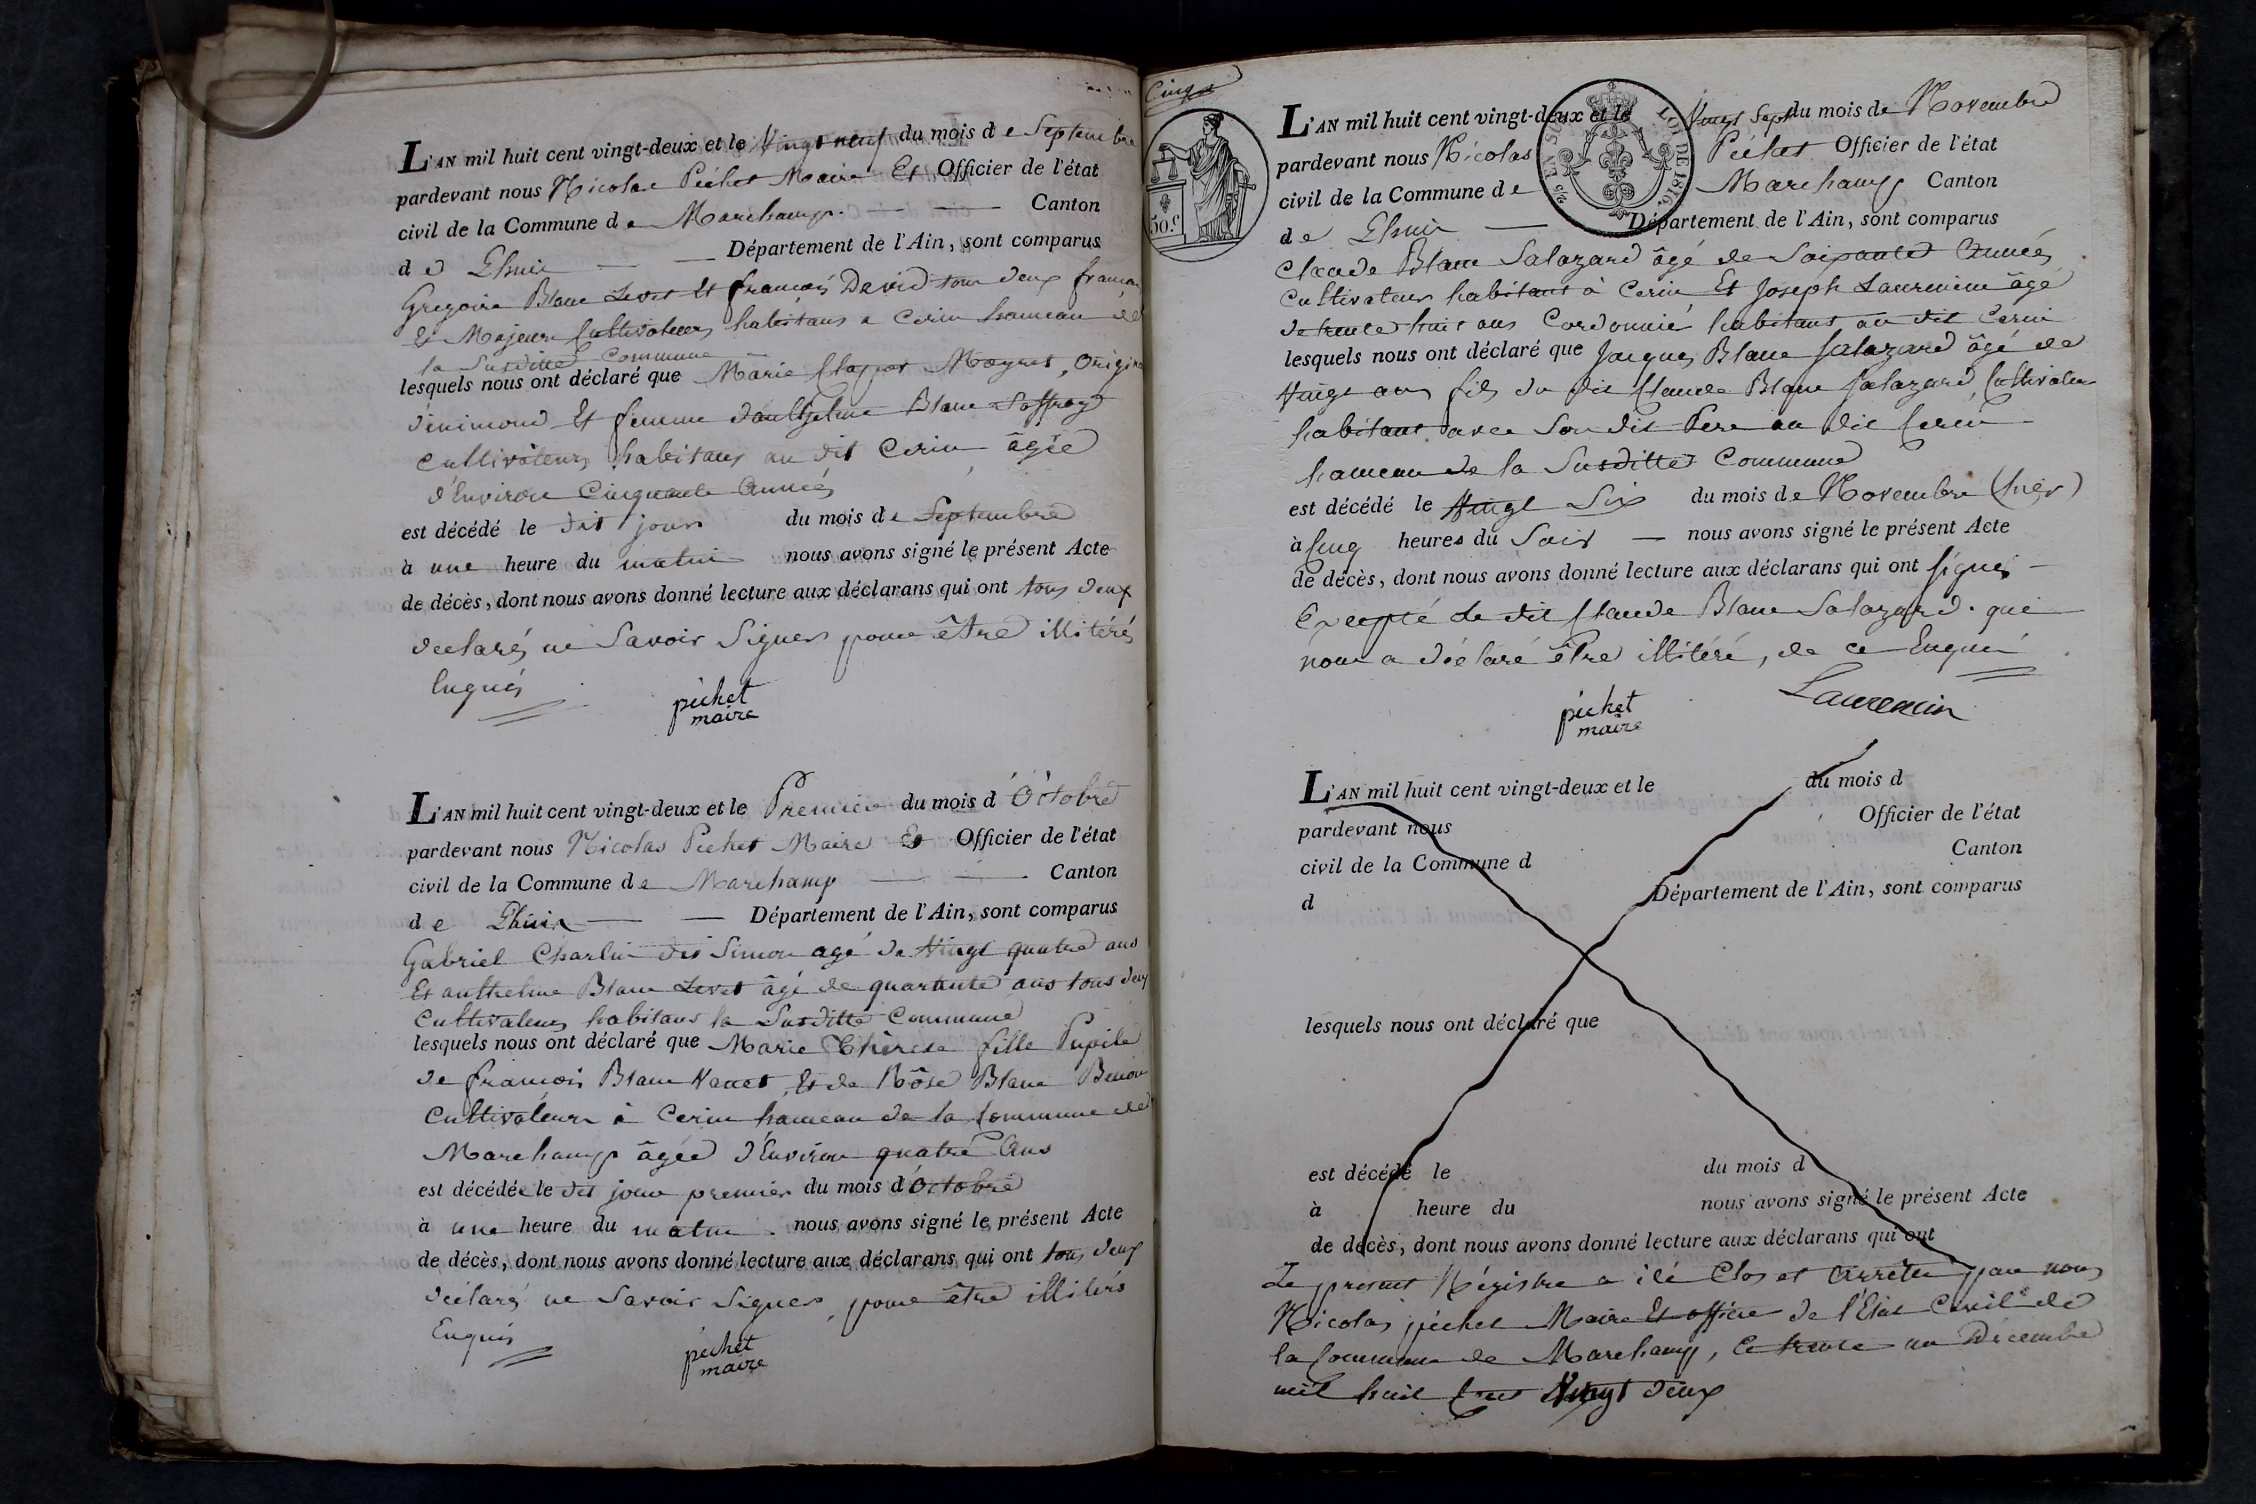 L'AN mil huit cent vingt-deux et le Vingt neuf du mois de Septembre
pardevant nous Nicolas Pichet Maire Et Officier de l'état
civil de la Commune de Marchamp. Canton
de Lhuis Département de l'Ain, sont comparus
Gregoire Blanc Levet Et françois David tous deux français
Et Majeurs Cultivateurs habitans a Cerin hameau de
la Susditte Commune
lesquels nous ont déclaré que Marie Clappot Mognet, Origine
d'énimond Et femme d'anthelme Blanc Soffray
Cultivateurs habitans au dit Cerin âgée
d'Environ Cinquante Années
est décédé le dit jour du mois de Septembre
à une heure du matin nous avons signé le présent Acte
de décès, dont nous avons donné lecture aux déclarans qui ont tous deux
declarés ne Savoir Signer pour être illitérés
Enquis
pichet
maire
L'AN mil huit cent vingt-deux et le Premier du mois d'Octobre
pardevant nous Nicolas Pichet Maire Et Officier de l'état
civil de la Commune de Marchamp Canton
de Lhuis Département de l'Ain, sont comparus
Gabriel Charlin dit Simon agé de Vingt quatre ans
Et anthelme Blanc Levet âgé de quarante ans tous deux
Cultivateurs habitans la Susditte Commune
lesquels nous ont déclaré que Marie Thérese fille Pupile
de françois Blanc Nanet Et de Rôse Blanc Benoit
Cultivateurs à Cerin hameau de la Commune de
Marchamp âgée d'Environ quatre Ans
est décédée le dit jour premier du mois d'Octobre
à une heure du matin. nous avons signé le présent Acte
de décès, dont nous avons donné lecture aux déclarans qui ont tous deux
déclaré ne Savoir Signer, pour être illitérés
Enquis
pichet
maire
Cinq
50 c
LOI DE 1816.
L'AN mil huit cent vingt-deux et le Vingt Sept du mois de Novembre
pardevant nous Nicolas Pichet Officier de l'état
civil de la Commune de Marchamp Canton
de Lhuis Département de l'Ain, sont comparus
Claude Blanc Salazard âgé de Soixante Années
Cultivateur habitant à Cerin Et Joseph Laurencin âgé
de trente huit ans Cordonnié habitant au dit Cerin
lesquels nous ont déclaré que Jacques Blanc Salazard âgé de
Vingt ans fils du dit Claude Blanc Salazard Cultivateur
habitant avec Son dit Pere au dit Cerin
hameau de la Susditte Commune
est décédé le Vingt Six du mois de Novembre (hier)
à Cinq heures du Soir nous avons signé le présent Acte
de décès, dont nous avons donné lecture aux déclarans qui ont Signés
Excepté Le dit Claude Blanc Salazard. qui
nous a déclaré être illitéré, de ce Enquis
pichet
maire
Laurencin
L'AN mil huit cent vingt-deux et le du mois d
pardevant nous Officier de l'état
civil de la Commune d Canton
d Département de l'Ain, sont comparus
lesquels nous ont déclaré que
est décédé le du mois d
à heure du nous avons signé le présent Acte
de décès, dont nous avons donné lecture aux déclarans qui ont
Le present Régistre a été Clos et Arrêté par nous
Nicolas pichet Maire Et officier de l'Etat Civil de
la Commune de Marchamp, Ce trente un Décembre
mil huit Cent Vingt deux